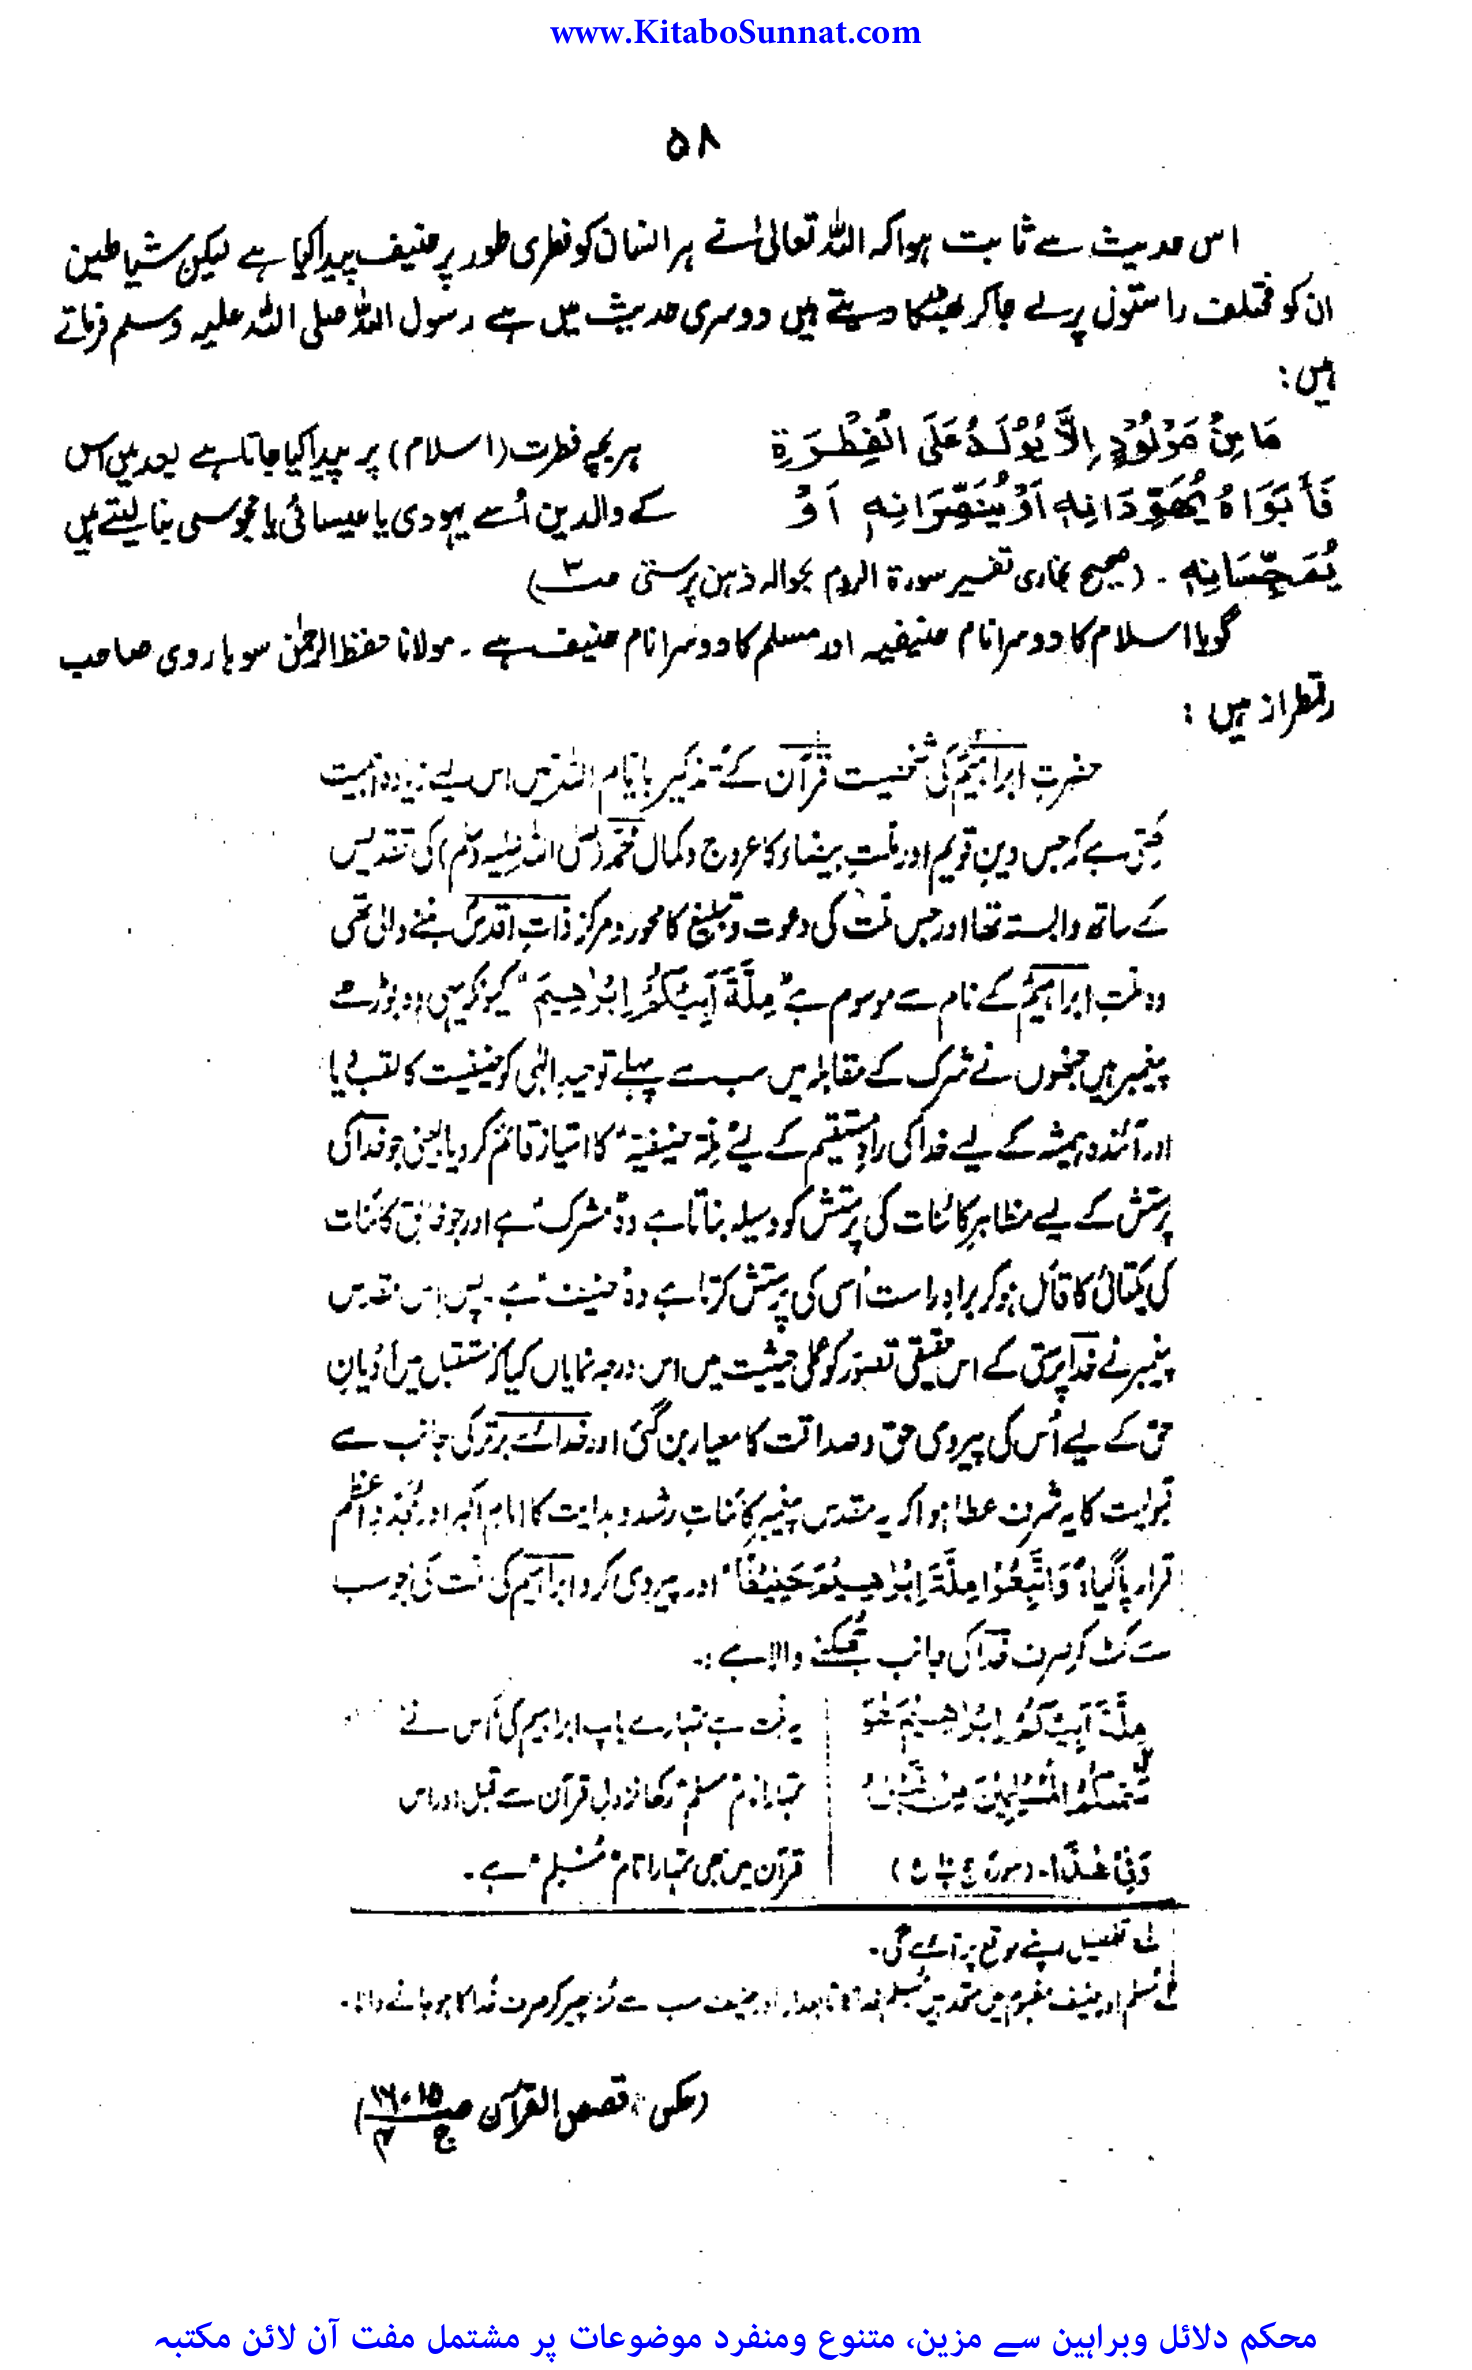 www.KitaboSunnat.com
۵۸
اس حدیث سے ثابت ہوا کہ اللہ تعالیٰ نے ہر انسان کو فطری طور پر حنیف پیدا کیا ہے لیکن شیاطین
ان کو مختلف راستوں پر لے جا کر بھٹکا دیتے ہیں دوسری حدیث میں ہے رسول اللہ صلی اللہ علیہ وسلم فرماتے
ہیں :
مَا مِنْ مَوْلُوْدٍ اِلَّا يُوْلَدُ عَلَى الْفِطْرَةِ ہر بچہ فطرت (اسلام) پر پیدا کیا جاتا ہے بعد میں اس
فَأَبَوَاهُ يُهَوِّدَانِهٖ اَوْ يُنَصِّرَانِهٖ اَوْ کے والدین اُسے یہودی یا عیسائی یا مجوسی بنا لیتے ہیں
يُمَجِّسَانِهٖ ۔ (صحیح بخاری تفسیر سورۃ الروم بحوالہ ذہن پرستی صـ۳)
گویا اسلام کا دوسرا نام حنیفیہ اور مسلم کا دوسرا نام حنیف ہے ۔ مولانا حفظ الرحمٰن سوہاروی صاحب
رقمطراز ہیں :
حضرت ابراہیمؑ کی شخصیت قرآن کے "تذکیر بایام اللہ" میں اس لیے زیادہ اہمیت
رکھتی ہے کہ جس دینِ قویم اور ملتِ بیضاء کا عروج و کمال محمد (صلی اللہ علیہ وسلم) کی تقدیس
کے ساتھ وابستہ تھا اور جس ملت کی دعوت و تبلیغ کا محور و مرکز ذاتِ اقدسؐ بننے والی تھی
وہ ملتِ ابراہیمؑ کے نام سے موسوم ہے "مِلَّةَ اَبِيْكُمْ اِبْرٰهِيْمَ" کیونکہ یہی وہ بوڑھے
پیغمبر ہیں جنھوں نے شرک کے مقابلہ میں سب سے پہلے توحیدِ الٰہی کو حنیفیت کا لقب دیا
اور آئندہ ہمیشہ کے لیے خدا کی راہِ مستقیم کے لیے "ملۃ حنیفیۃ" کا امتیاز قائم کر دیا یعنی جو خدا کی
پرستش کے لیے مظاہرِ کائنات کی پرستش کو وسیلہ بناتا ہے وہ "مشرک" ہے اور جو خالقِ کائنات
کی یکتائی کا قائل ہو کر براہِ راست اُسی کی پرستش کرتا ہے وہ "حنیف" ہے ۔ پس اس مقدس
پیغمبر نے خدا پرستی کے اس حقیقی تصور کو عملی حیثیت میں اس درجہ نمایاں کیا کہ مستقبل میں ادیانِ
حق کے لیے اُس کی پیروی حق و صداقت کا معیار بن گئی اور خدائے برتر کی جانب سے
قبولیت کا یہ شرف عطا ہوا کہ یہ مقدس پیغمبر کائناتِ رشد و ہدایت کا امامِ اکبر اور مجددِ اعظم
قرار پا گیا، "وَاتَّبِعُوْا مِلَّةَ اِبْرٰهِيْمَ حَنِيْفًا" اور پیروی کرو ابراہیم کی ملت کی جو سب
سے کٹ کر صرف خدا کی جانب جھکنے والا ہے :۔
مِلَّةَ اَبِيْكُمْ اِبْرٰهِيْمَ هُوَ یہ ملت ہے تمہارے باپ ابراہیم کی اُس نے
سَمّٰىكُمُ الْمُسْلِمِيْنَ مِنْ قَبْلُ تمہارا نام "مسلم" رکھا نزول قرآن سے قبل اور اس
وَفِيْ هٰذَا ۔ قرآن میں بھی تمہارا نام "مُسْلِم" ہے ۔
لہ تفصیل اپنے موقع پر آئے گی ۔
مسلم اور حنیف مفہوم میں متحد ہیں مسلم خدا کا تابعدار اور حنیف سب سے منہ پھیر کر صرف خدا کا ہو جانے والا ۔
(عکس، قصص القرآن صـ ۱۵، ۱۶ ج ۳)
محکم دلائل وبراہین سے مزین، متنوع ومنفرد موضوعات پر مشتمل مفت آن لائن مکتبہ